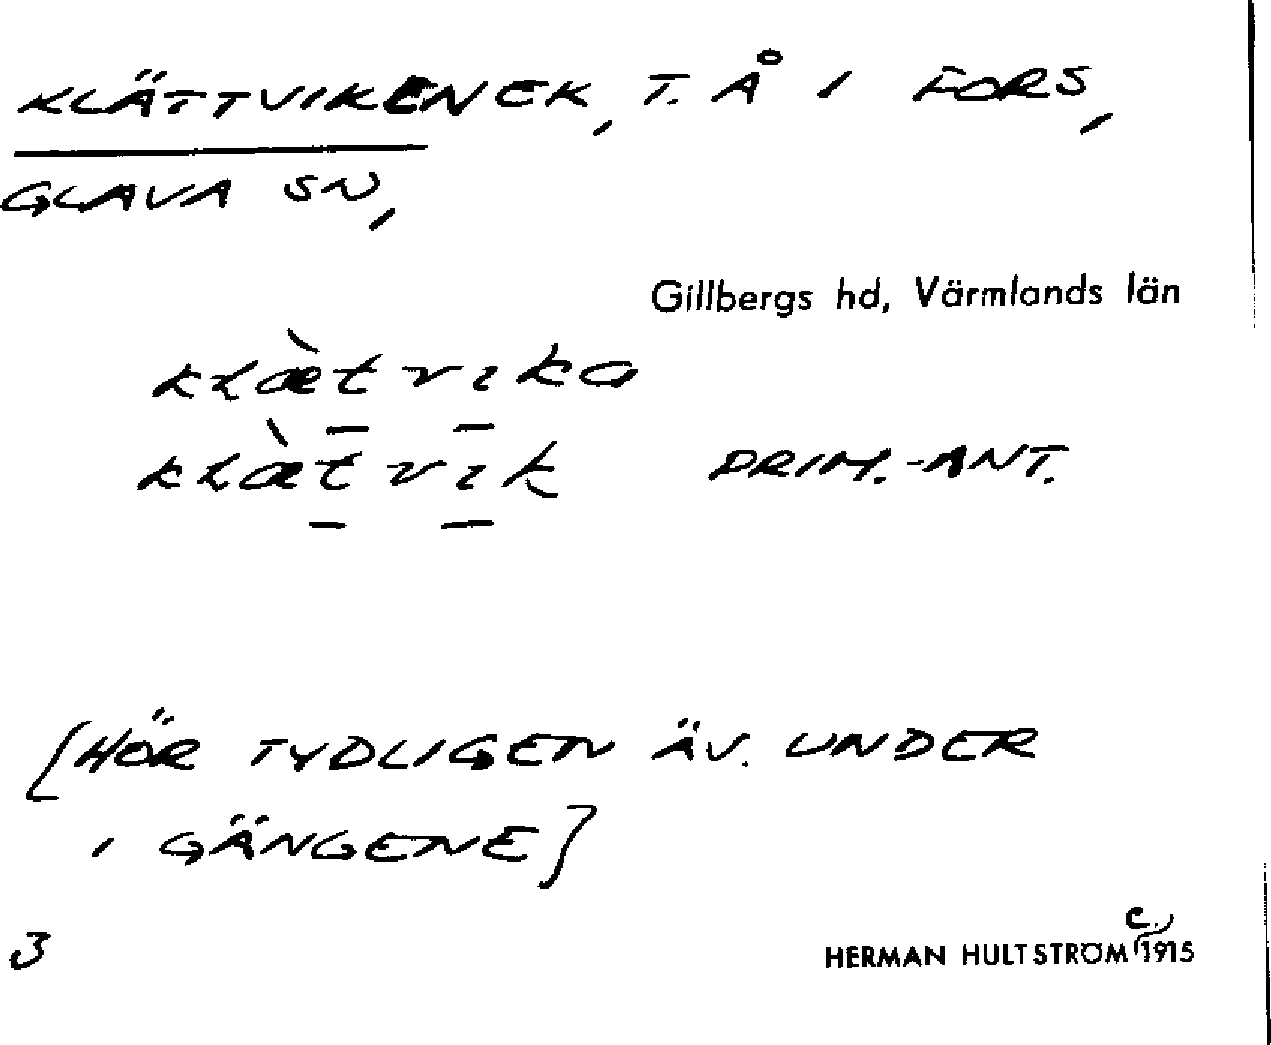 KLÄTTVIKEN EK, T. Å I FORS,
GLAVA SN,
Gillbergs hd, Värmlands län
klæ̀tvıka
klæ̀tvık PRIM.-ANT.
[HÖR TYDLIGEN ÄV. UNDER
I GÄNGENE]
3 HERMAN HULTSTRÖM c. 1915